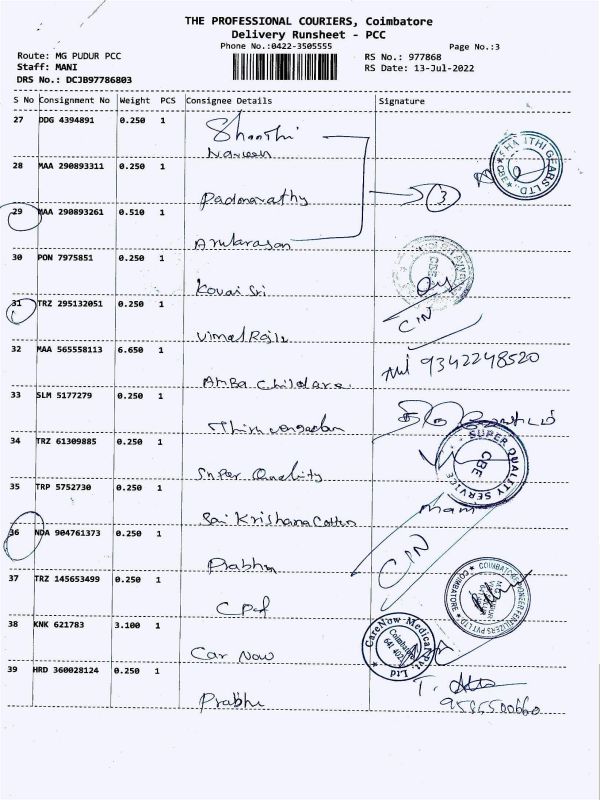 THE PROFESSIONAL COURIERS, Coimbatore
Delivery Runsheet - PCC
Phone No.:0422-3505555
Page No.:3
Route: MG PUDUR PCC
RS No.: 977868
Staff: MANI
RS Date: 13-Jul-2022
DRS No.: DCJB97786803
S No Consignment No Weight PCS Consignee Details Signature
27 DDG 4394891 0.250 1 Shanthi
Naveen
SHANTHI GEARS LTD. CBE
28 MAA 290893311 0.250 1
Padmavathy
3
29 MAA 290893261 0.510 1
Anbarasan
30 PON 7975851 0.250 1
CBE
Kovai Sri
31 TRZ 295132051 0.250 1
C/N
Vimal Raju
32 MAA 565558113 6.650 1
9342248520
33 SLM 5177279 0.250 1
34 TRZ 61309885 0.250 1
SUPER QUALITY SERVICE CBE
Super Quality
35 TRP 5752730 0.250 1
Mani
Sai Krishana Cotton
36 NDA 904761373 0.250 1
C/N
Prabhu
37 TRZ 145653499 0.250 1
COIMBATORE PIONEER FERTILIZERS PVT LTD COIMBATORE
38 KNK 621783 3.100 1
CareNow Medical Pvt. Ltd Coimbatore
Car Now
39 HRD 360028124 0.250 1
Prabhu